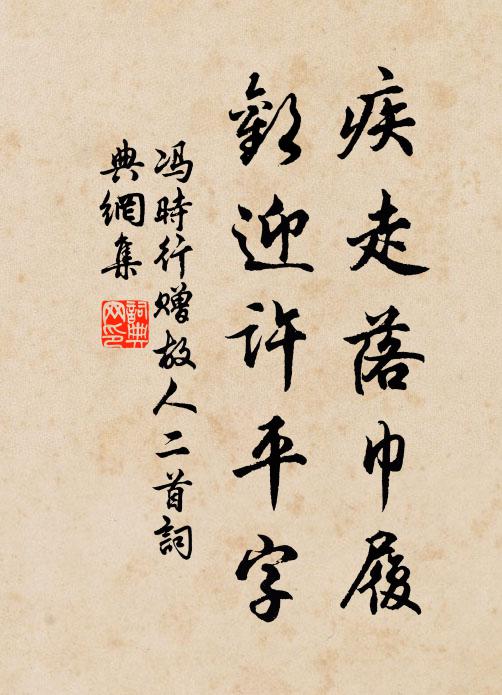 疾走落巾履
歡迎許平字
冯時行赠故人二首詞
典網集
詞典网印